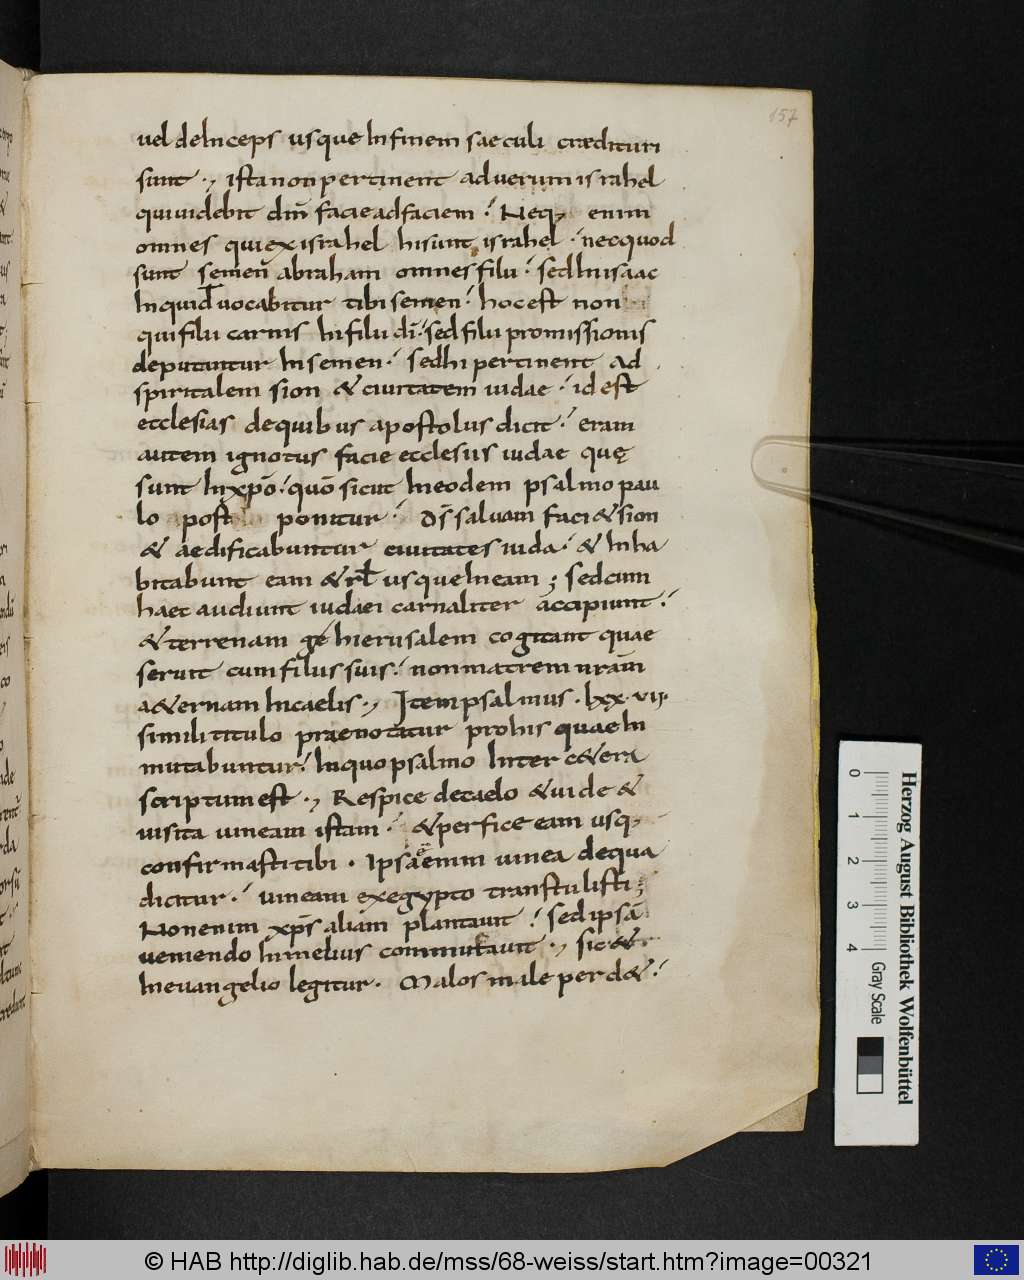 157
uel deinceps usque infinem saeculi credituri
sunt ·, ista non pertinent ad uerum israhel
qui uidebit dm̄ facie ad faciem ·́ Neq; enim
omnes qui ex israhel hi sunt israhel · nec quod
sunt semen abraham omnes filii ·́ sed in isaac
inquid uocabitur tibi semen ·́ hoc est non
qui filii carnis hi filii dī ·́ sed filii promissionis
deputantur in semen ·́ sed hi pertinent ad
spiritalem sion & ciuitatem iudae ·́ id est
ecclesias de quibus apostolus dicit ·́ eram
autem ignotus facie ecclesiis iudae quę
sunt in xp̄o ·́ quō sicut in eodem psalmo pau
lo post ponitur ·́ Ds̄ saluam faci& sion
& aedificabuntur ciuitates iuda ·́ & inha
bitabunt eam &rł usque in eam ; sed cum
haec audiunt iudaei carnaliter accipiunt ·́
& terrenam hierusalem cogitant quae
seruit cum filiis suis ·́ non matrem nr̄am
a&ernam in caelis ·, Item psalmus · lxx·vii·
simili titulo praenotatur pro his quae in
mutabuntur ·́ In quo psalmo inter c&era
scriptum est ·, Respice de caelo & uide &
uisita uineam istam ·́ & perfice eam usq;
confirmasti tibi · Ipsa enim uinea de qua
dicitur ·́ uineam ex egypto transtulisti ;
Non enim xp̄s aliam plantauit ·́ sed ipsā
ueniendo in melius commutauit ·, sic &
in euangelio legitur · Malos male perd& ·́
Herzog August Bibliothek Wolfenbüttel
0 1 2 3 4 Gray Scale
© HAB http://diglib.hab.de/mss/68-weiss/start.htm?image=00321